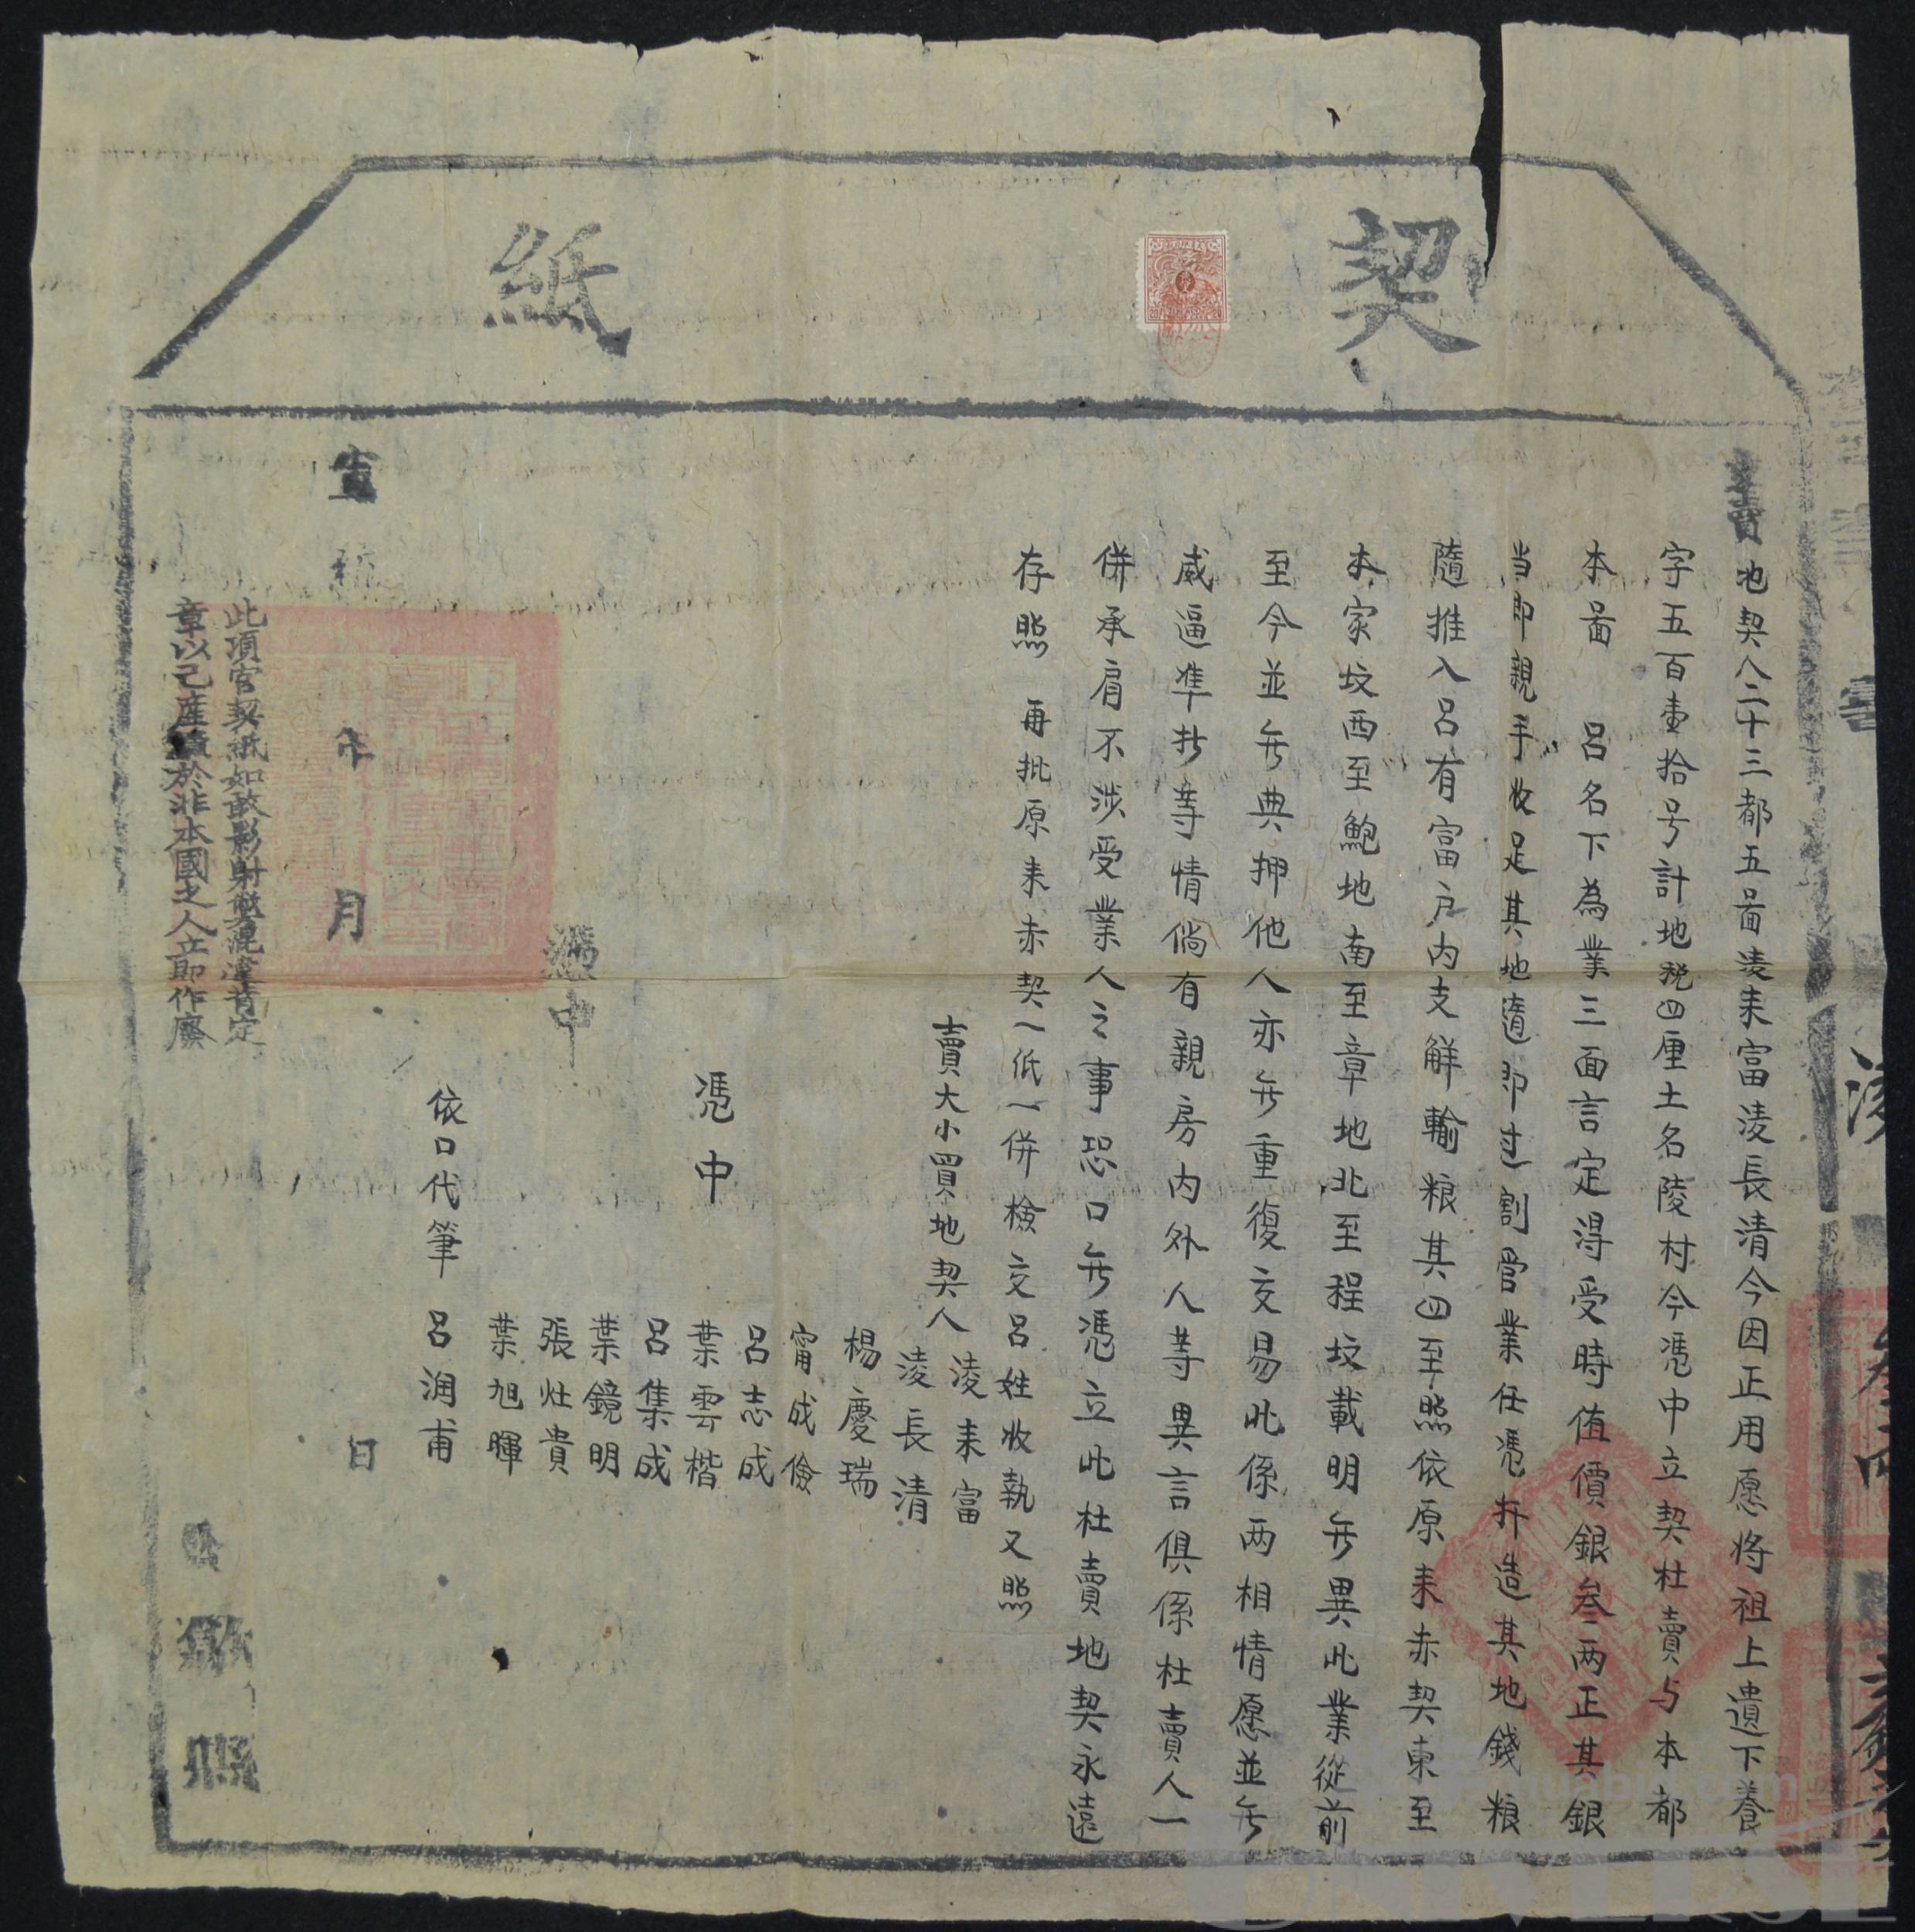 契紙
立賣地契人二十三都五啚淩耒富淩長清今因正用愿将祖上遺下養
字五百壹拾号計地稅四厘土名陵村今憑中立契杜賣与本都
本啚 呂名下為業三面言定淂受時值價銀叁両正其銀
当即親手收足其地隨即过割管業任憑扦造其地錢粮
隨推入呂有富户内支觧輸粮其四至照依原耒赤契東至
本家坟西至鮑地南至章地北至程坟載明无異此業從前
至今並无典押他人亦无重復交易此係両相情愿並无
威逼準折等情倘有親房内外人等異言俱係杜賣人一
併承肩不涉受業人之事恐口无憑立此杜賣地契永遠
存照 再批原耒赤契一紙一併檢交呂姓收執又照
賣大小買地契人 淩耒富
淩長清
楊慶瑞
甯成儉
憑中 呂志成
葉雲楷
呂集成
葉鏡明
張灶貴
葉旭暉
憑中
依口代筆 呂润甫
宣統 年 月 日
此項官契紙如敢影射蒙混違背定
章以己產賣於非本國之人立即作廢
歙縣